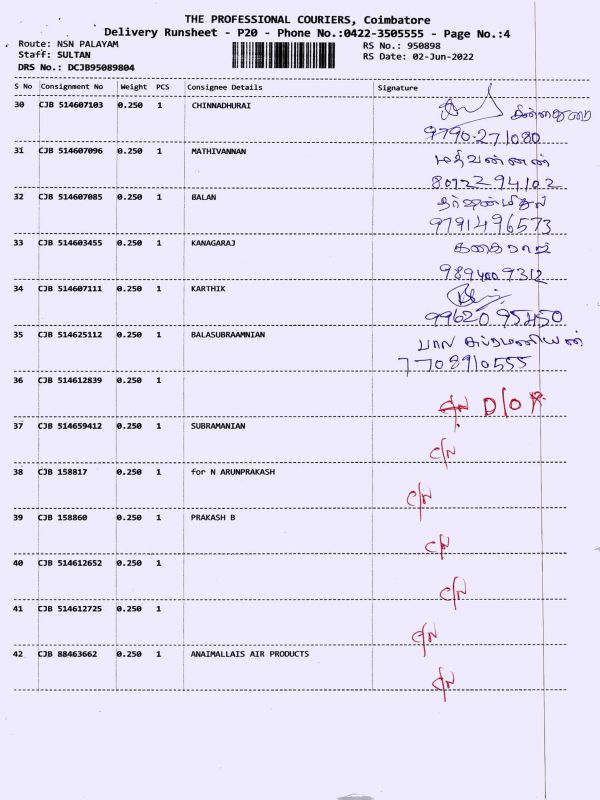 THE PROFESSIONAL COURIERS, Coimbatore
Delivery Runsheet - P20 - Phone No.:0422-3505555 - Page No.:4
Route: NSN PALAYAM RS No.: 950898
Staff: SULTAN RS Date: 02-Jun-2022
DRS No.: DCJB95089804
S No Consignment No Weight PCS Consignee Details Signature
30 CJB 514607103 0.250 1 CHINNADHURAI சின்னதுரை
9790271080
31 CJB 514607096 0.250 1 MATHIVANNAN மதிவண்ணன்
8072294102
32 CJB 514607085 0.250 1 BALAN
9791496573
33 CJB 514603455 0.250 1 KANAGARAJ கனகராஜ்
9894009312
34 CJB 514607111 0.250 1 KARTHIK
9962095450
35 CJB 514625112 0.250 1 BALASUBRAAMNIAN பால சுப்ரமணியன்
7708910555
36 CJB 514612839 0.250 1
D/O
37 CJB 514659412 0.250 1 SUBRAMANIAN
C/N
38 CJB 158817 0.250 1 for N ARUNPRAKASH
C/N
39 CJB 158860 0.250 1 PRAKASH B
C/N
40 CJB 514612652 0.250 1
C/N
41 CJB 514612725 0.250 1
C/N
42 CJB 88463662 0.250 1 ANAIMALLAIS AIR PRODUCTS
C/N